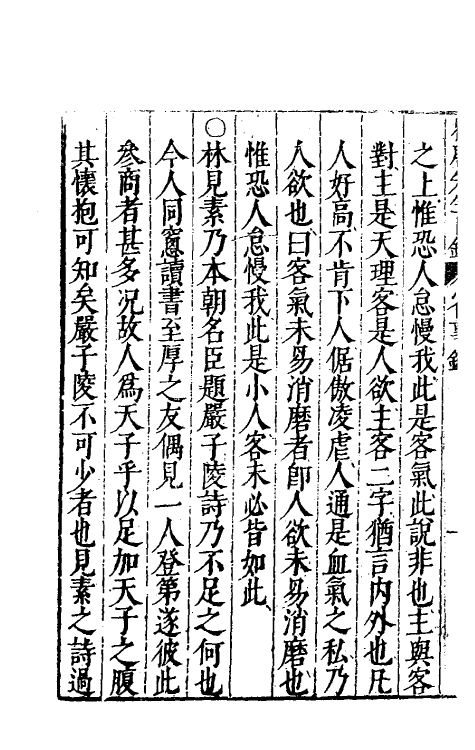 之上惟恐人怠慢我此是客氣此說非也主與客
對主是天理客是人欲主客二字猶言内外也凡
人好高不肯下人倨傲凌虐人通是血氣之私乃
人欲也曰客氣未易消磨者卽人欲未易消磨也
惟恐人怠慢我此是小人客未必皆如此
○林見素乃本朝名臣題嚴子陵詩乃不足之何也
今人同窓讀書至厚之友偶見一人登第遂彼此
參商者甚多况故人爲天子乎以足加天子之腹
其懷抱可知矣嚴子陵不可少者也見素之詩過